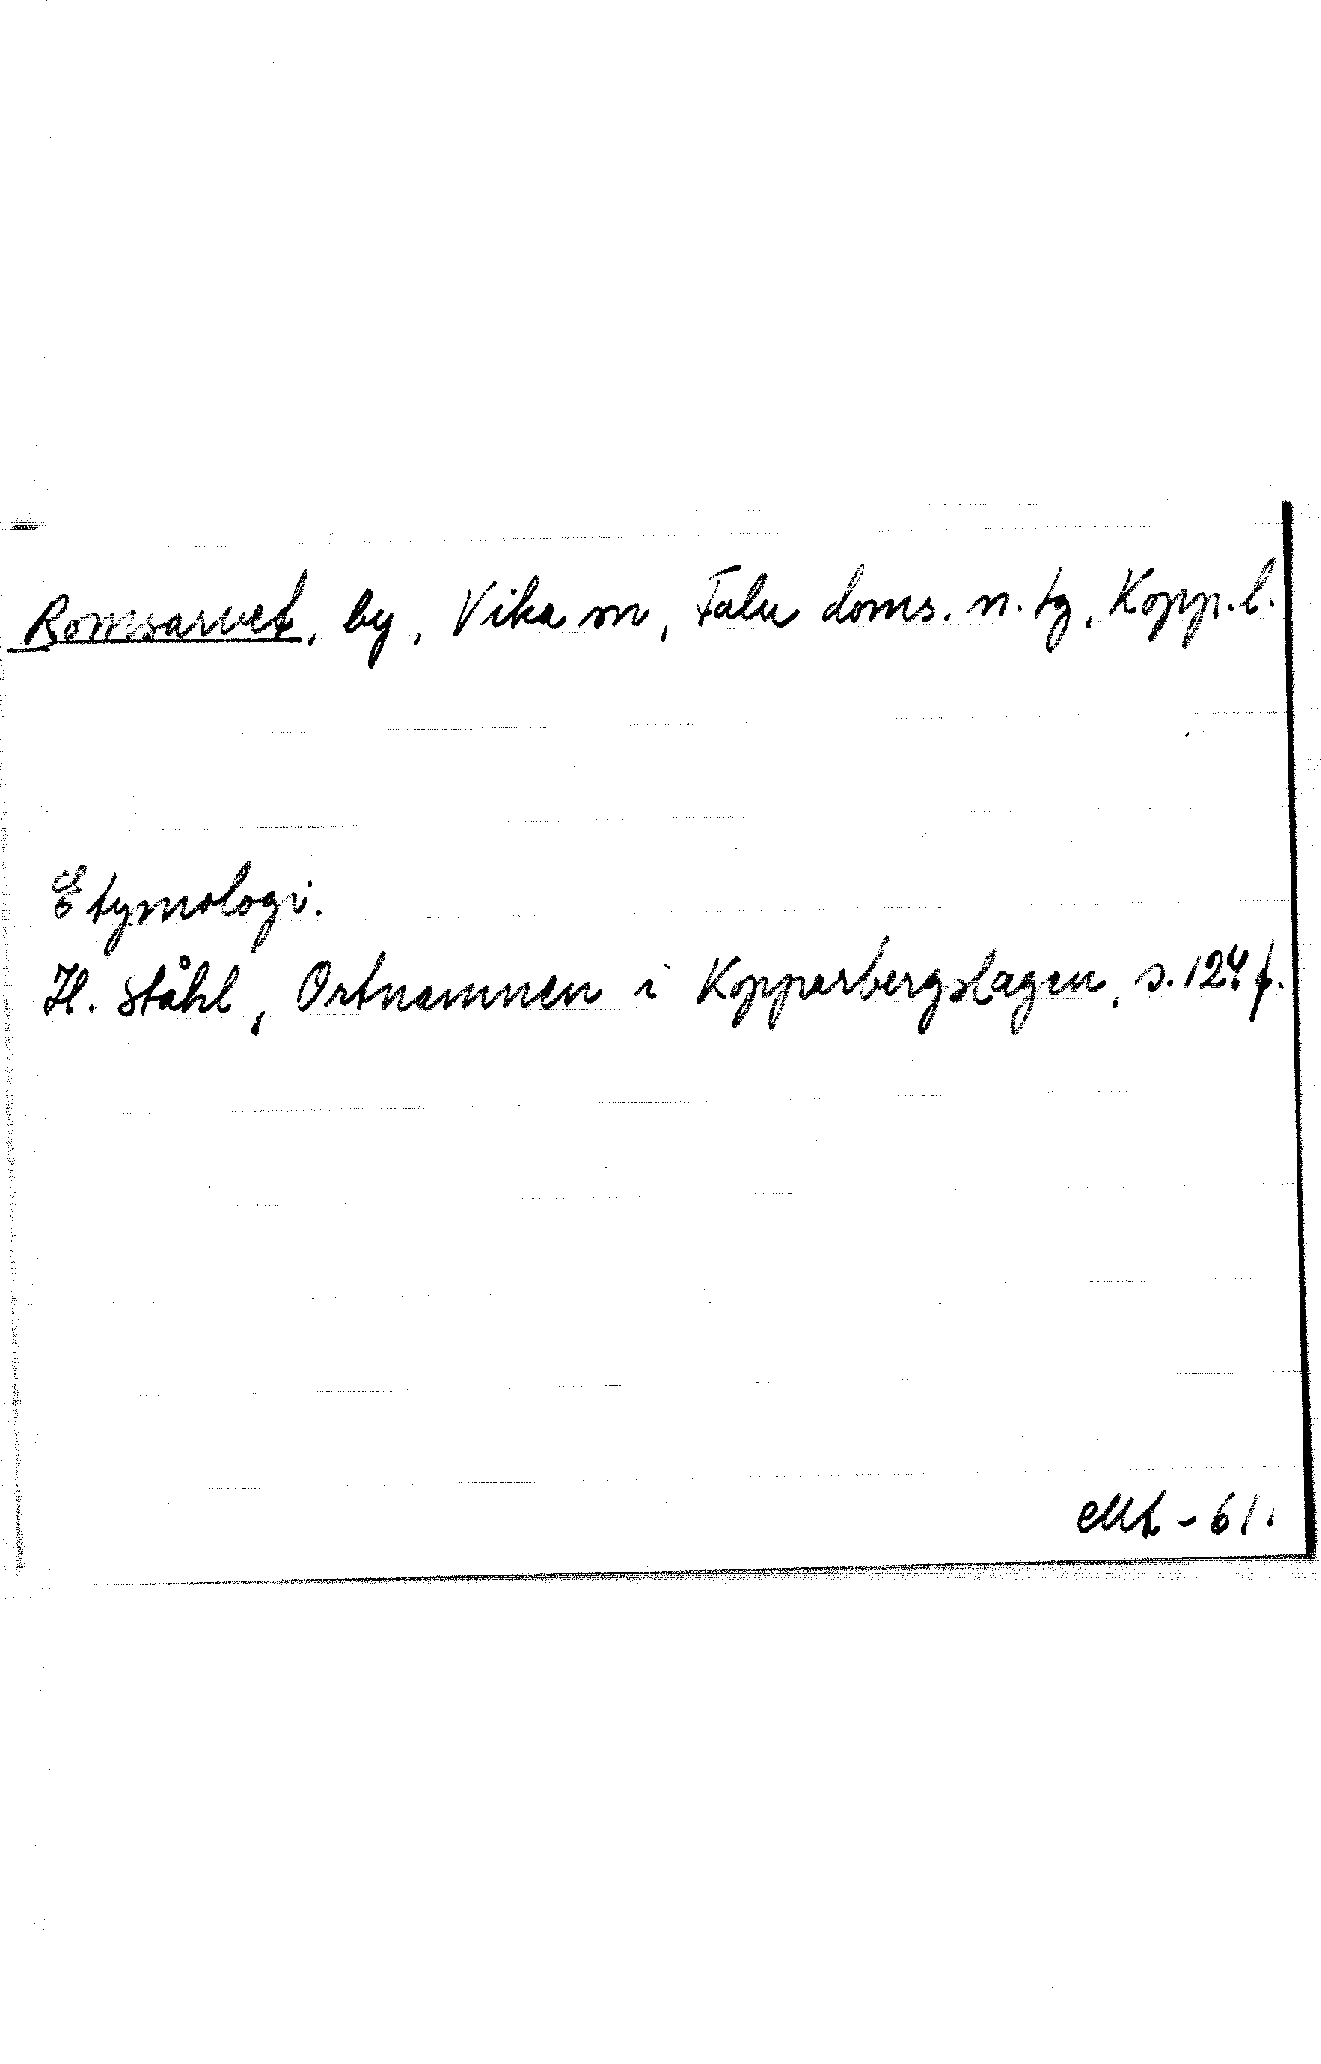 Bomsarvet, by, Vika sn, Falu doms. n. tg, Kopp.l.
Etymologi.
H. Ståhl, Ortnamnen i Kopparbergslagen, s. 124 f.
-61.